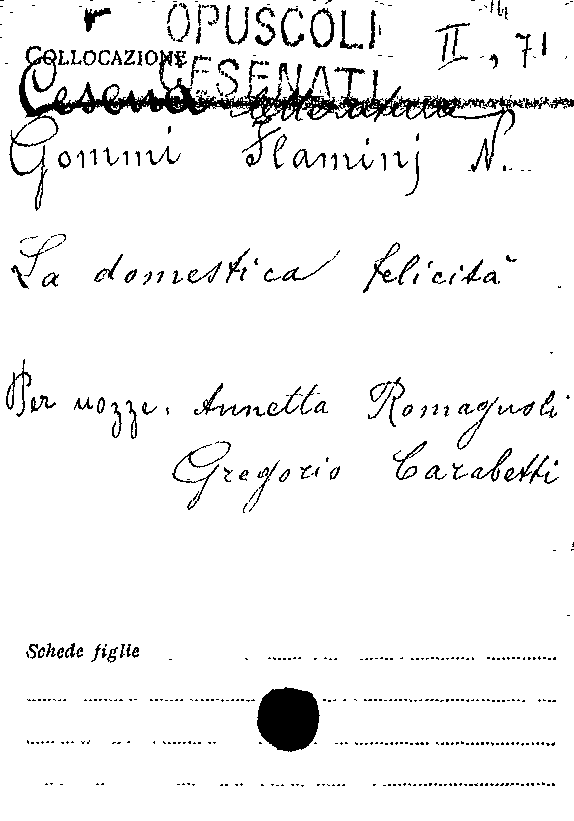 OPUSCOLI
CESENATI
II, 71
COLLOCAZIONE
Cesena letteratura
Gommi Flaminj N.
La domestica felicità
Per nozze: Annetta Romagnoli
Gregorio Carabetti
Schede figlie